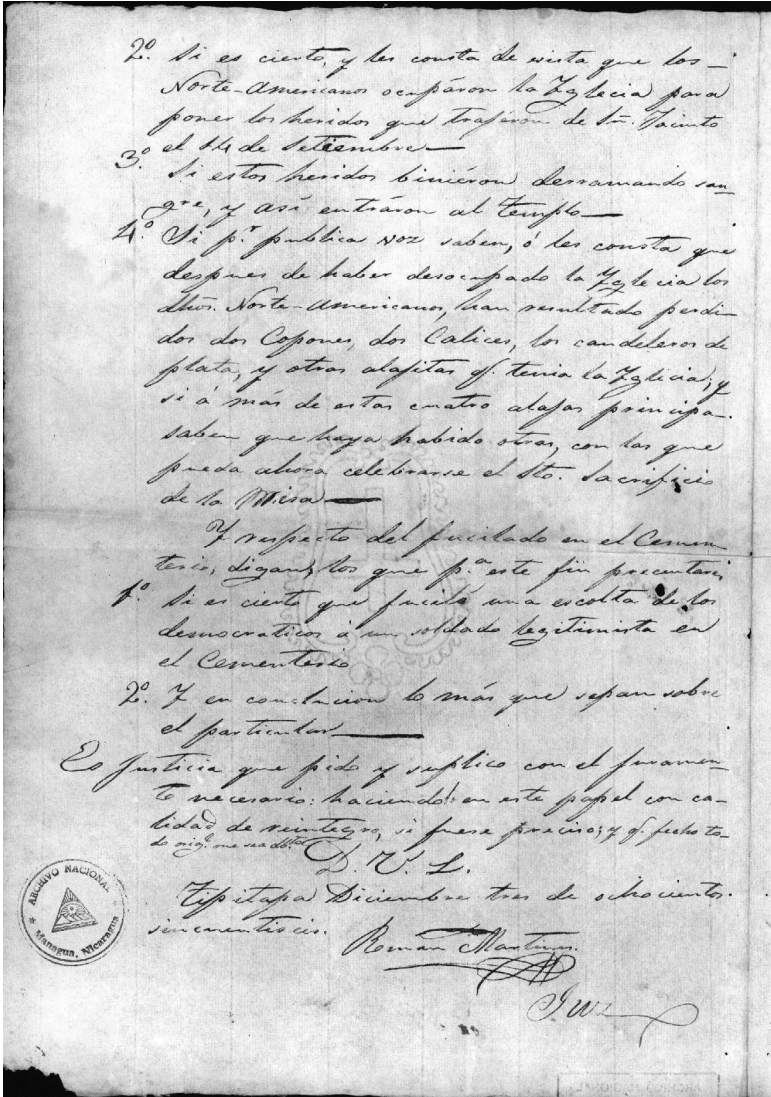 2º. Si es cierto, y les consta de vista que los
Norte-Americanos ocupáron la Yglecia para
poner los heridos que trajéron de Sn. Jacinto
el 14 de Setiembre
3º. Si estos heridos biniéron derramando san-
gre, y así entráron al templo
4º. Si pr. publica voz saben, ó les consta que
despues de haber desocupado la Yglecia los
dhos. Norte-Americanos, han resultado perdi-
dos dos Copones, dos Calices, los candeleros de
plata, y otras alajitas q. tenia la Yglicia; y
si á más de estas cuatro alajas principa.
saben que haya habido otras, con las que
pueda ahora celebrarse el Sto. Sacrificio
de la Misa
Y respecto del fucilado en el Cemen-
terio, digan, los que pa. este fin precentaré
1º. Si es cierto que fuciló una escolta de los
democraticos á un soldado legitimista en
el Cementerio
2º. Y en conclucion lo más que sepan sobre
el particular
Es Justicia que pido y suplico con el juramen-
to necesario: haciendo en este papel con ca-
lidad de reintegro, si fuese preciso; y q. fecho to-
do orig. me sea
D. V. L.
Tipitapa Diciembre tres de ochocientos.
sincuentiseis.
Roman Martinez.
Juez
ARCHIVO NACIONAL
Managua, Nicaragua